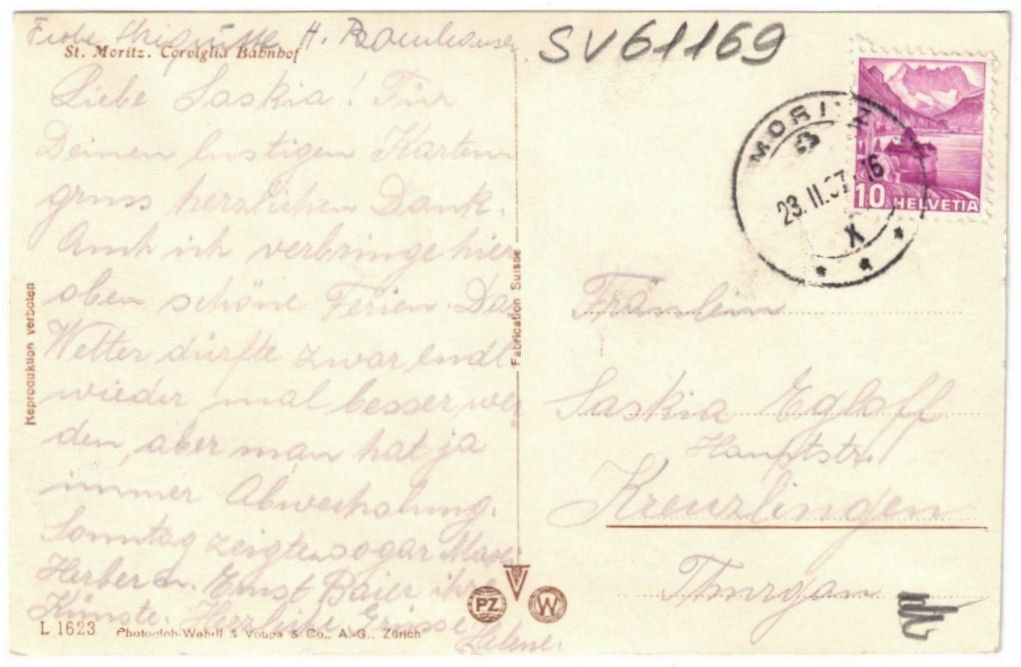 Frohe Skigrüsse H. Bornhauser
St. Moritz. Corviglia Bahnhof
Liebe Saskia! Für
Deinen lustigen Karten
gruss herzlichen Dank.
Auch ich verbringe hier
oben schöne Ferien. Das
Wetter dürfte zwar endl
wieder mal besser wer
den, aber man hat ja
immer Abwechslung.
Sonntag zeigten sogar Maxi
Herber u. Ernst Baier ihre
Künste. Herzliche Grüsse
Helene.
L 1623
Photoglob-Wehrli & Vouga & Co., A.-G., Zürich
Reproduktion verboten
Fabrication Suisse
PZ
W
SV61169
MORITZ
23.II.37.-16
X
10 HELVETIA
Fräulein
Saskia Egloff
Hauptstr.
Kreuzlingen
Thurgau